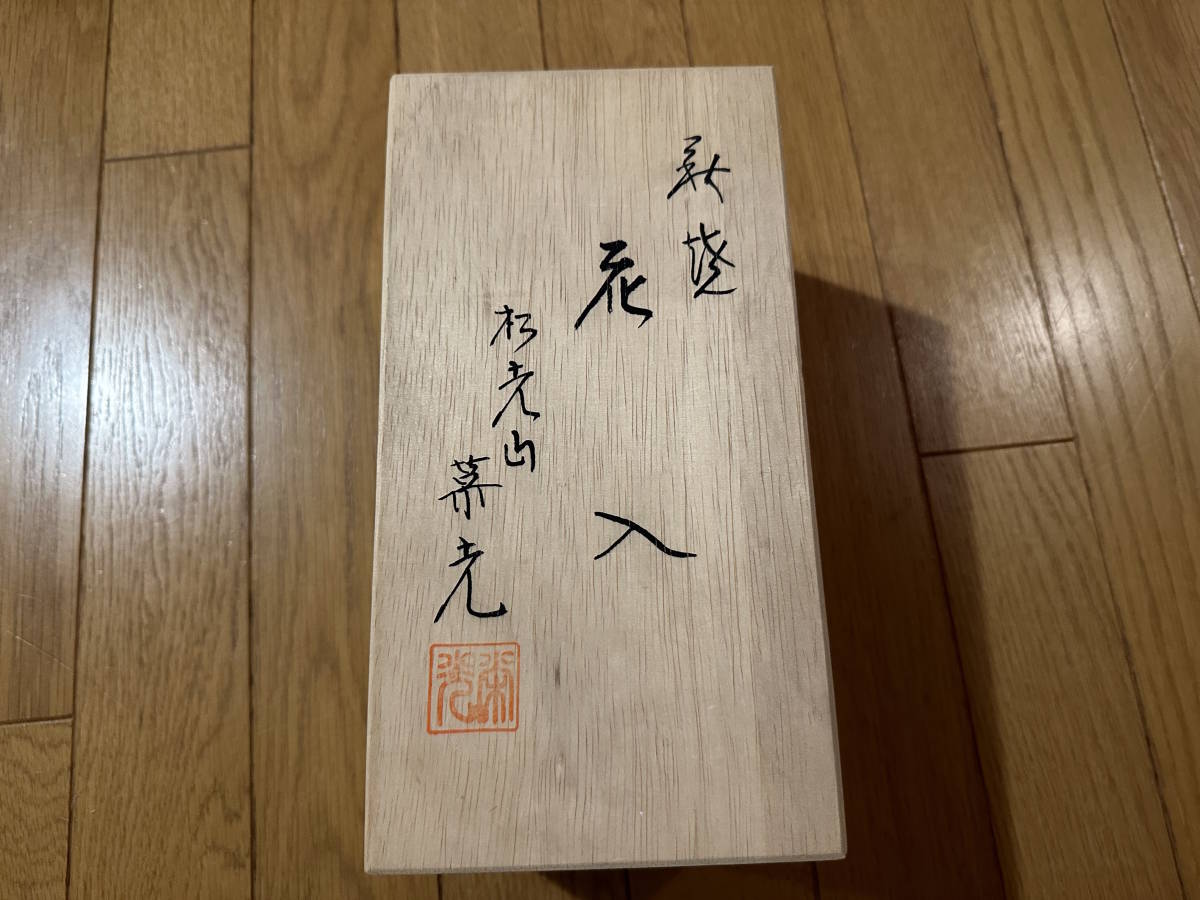 萩焼
花入
松光山
栄光